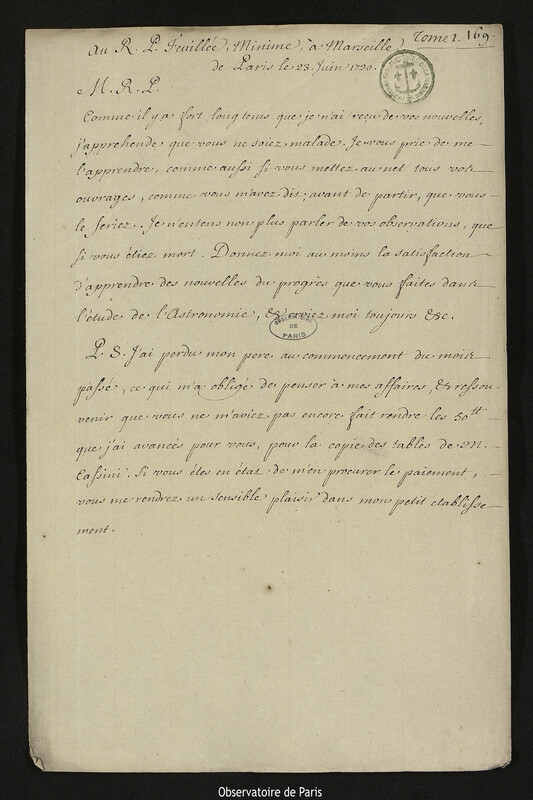 Tome 1. 169.
Au R. P. Feuillée, Minime, à Marseille,
de Paris le 23. Juin 1720.
M. R. P.
Comme il y a fort longtems que je n'ai reçu de vos nouvelles,
j'apprehende que vous ne soiez malade. Je vous prie de me
l'apprendre, comme aussi si vous mettez au net tous vos
ouvrages, comme vous m'avez dit, avant de partir, que vous
le feriez. Je n'entens non plus parler de vos observations, que
si vous étiez mort. Donnez moi au moins la satisfaction
d'apprendre des nouvelles du progrès que vous faites dans
l'étude de l'Astronomie, & croiez moi toujours &c.
OBSERVATOIRE
DE
PARIS
P. S. J'ai perdu mon pere au commencement du mois
passé, ce qui m'a obligé de penser à mes affaires, & ressou-
venir que vous ne m'aviez pas encore fait rendre les 50tt
que j'ai avancés pour vous, pour la copie des tables de M.
Cassini. Si vous êtes en état de m'en procurer le paiement,
vous me rendrez un sensible plaisir dans mon petit etablisse
ment.
Observatoire de Paris